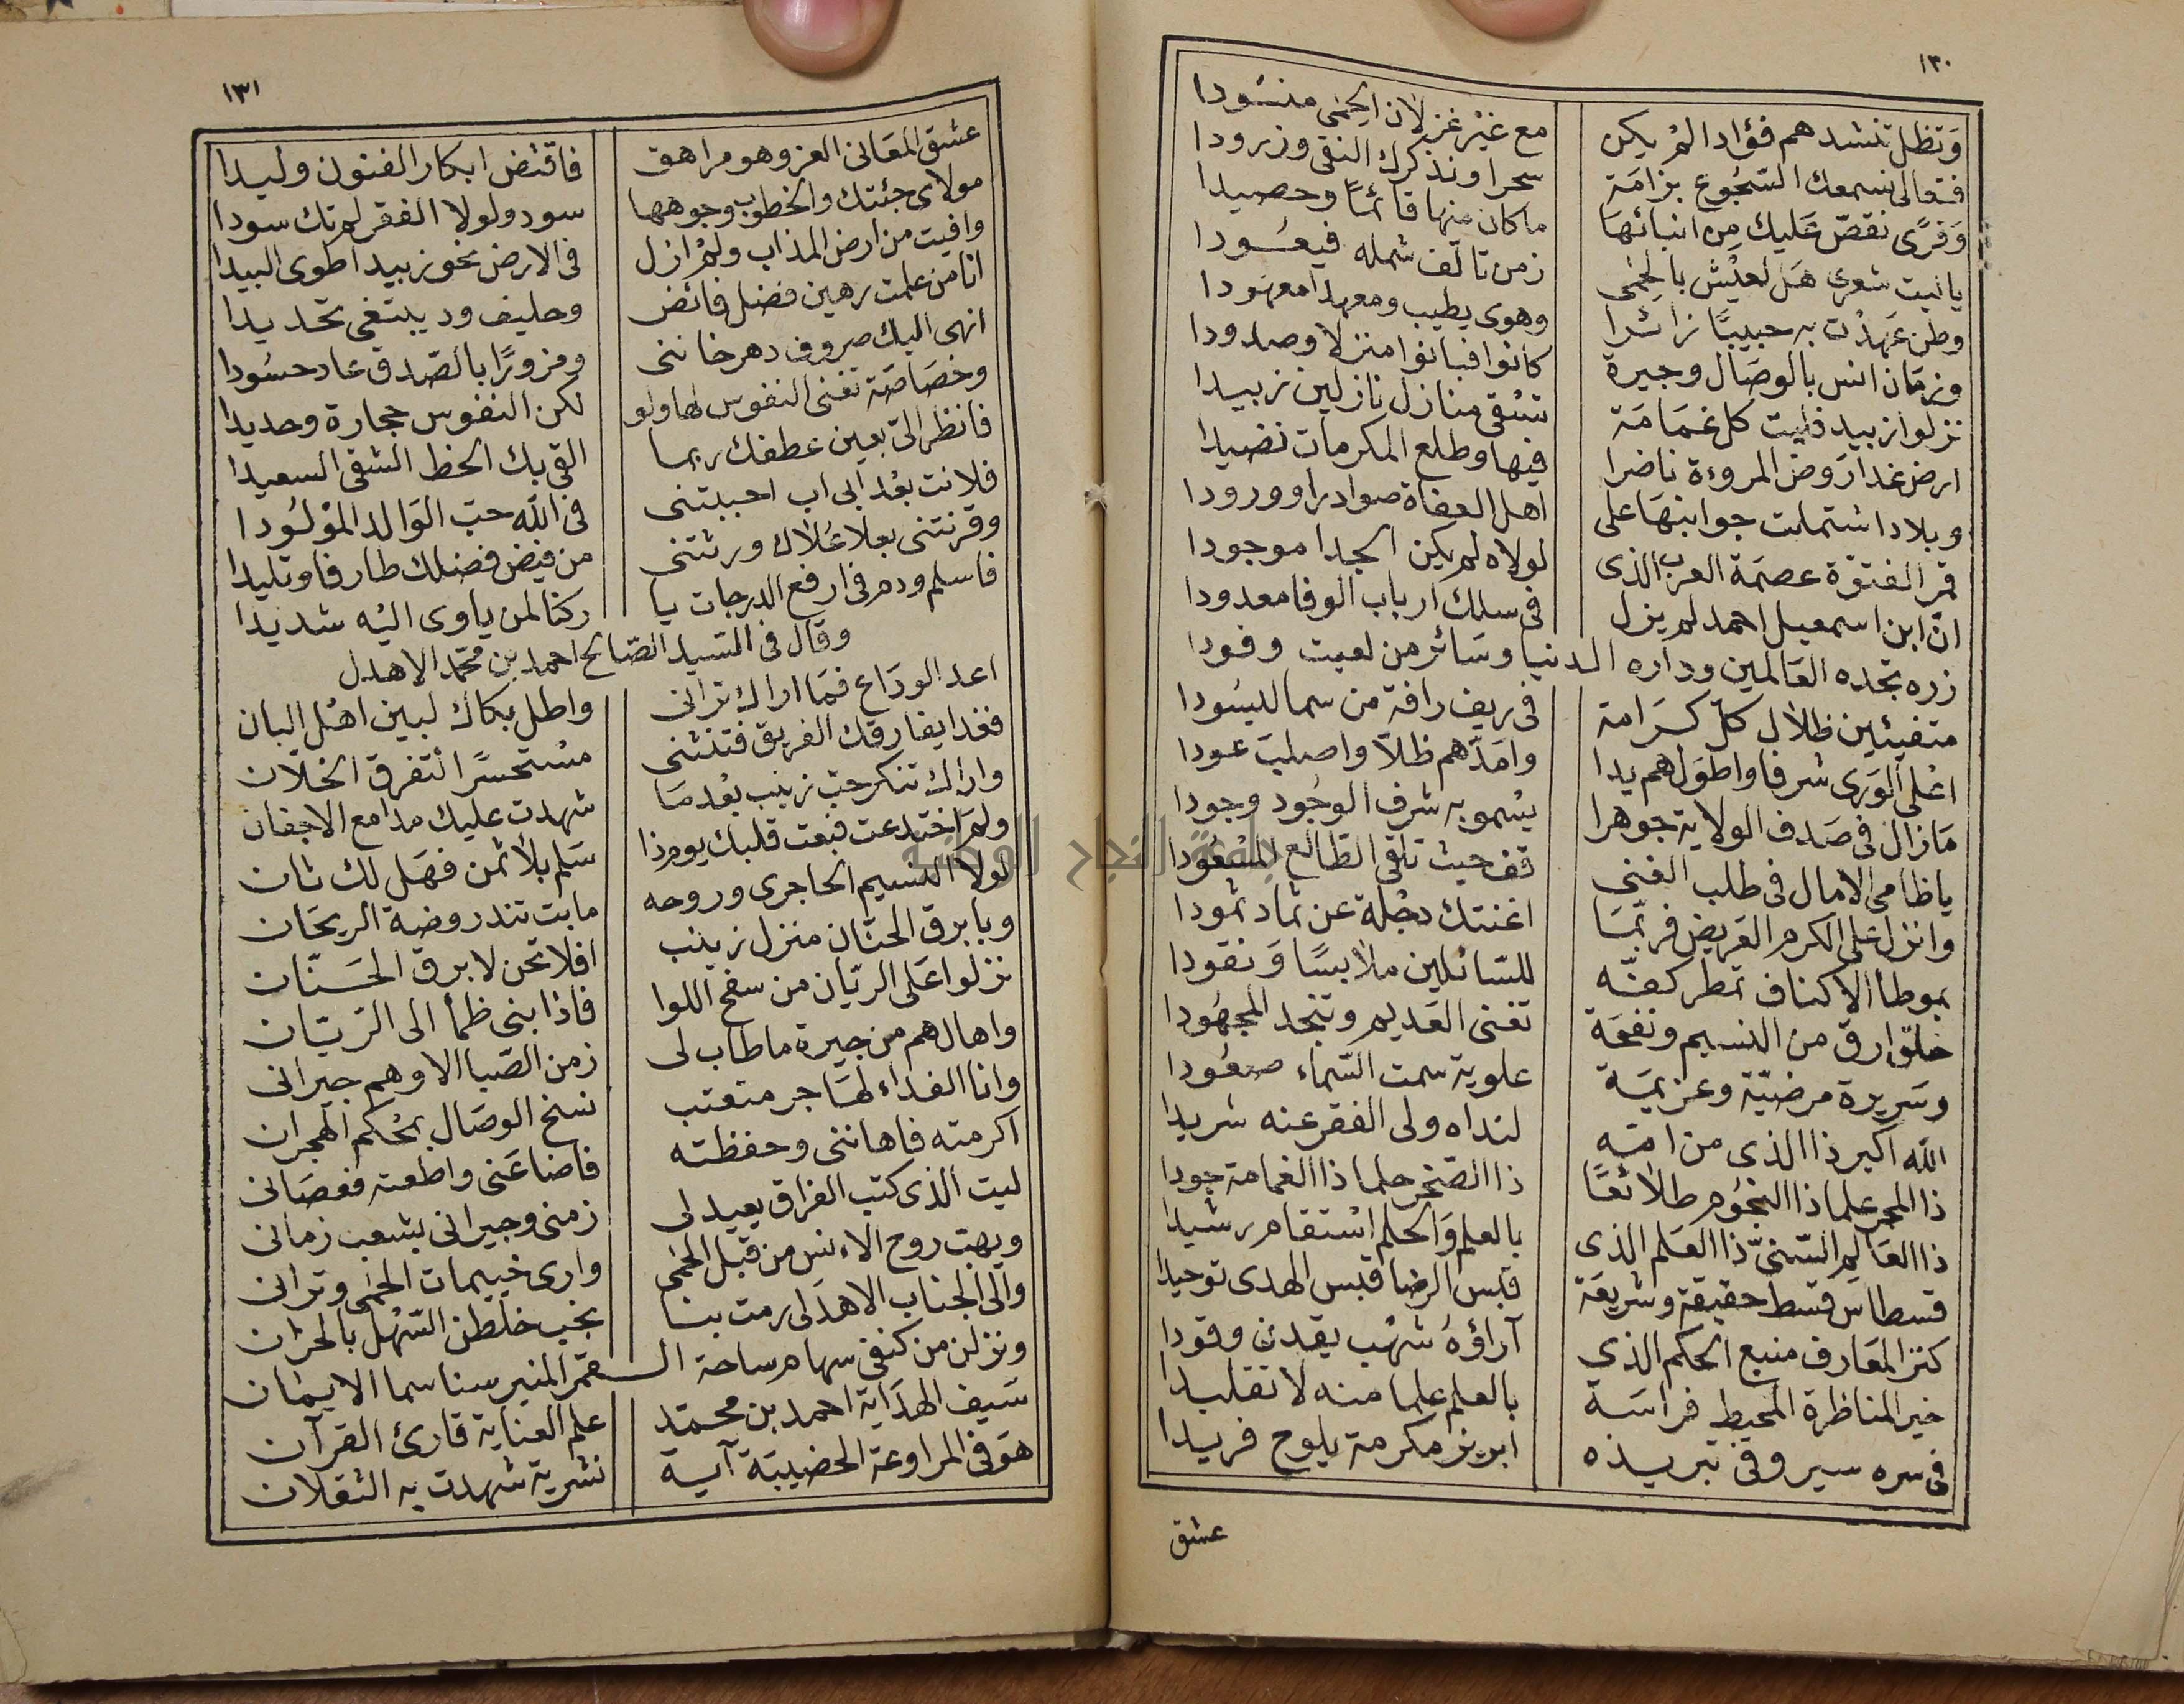 ١٣٠
وتظل تنشدهم فؤادا لم يكن مع غير غزلان الحمى منشودا
فتعالى نسمعك السجوع برامة سحرا ونذكرك النقى وزرودا
وقرى نقص عليك من انبائها ما كان منها قائما وحصيدا
ياليت شعرى هل لعيش بالحمى زمن تالف شمله فيعودا
وطن عهدت به حبيبا زائرا وهوى يطيب ومعهدا معهودا
وزمان انس بالوصال وجيرة كانوا فبانوا منزلا وصدودا
نزلوا زبيد فليت كل غمامة تسقى منازل نازلين زبيدا
ارض غدا روض المروءة ناضرا فيها وطلع المكرمات نضيدا
وبلادا شتملت جوانبها على اهل العفاة صوادرا وورودا
قمر الفتوة عصمة العرب الذى لولاه لم يكن الجدا موجودا
ان ابن اسمعيل احمد لم يزل فى سلك ارباب الوفا معدودا
زره تجده العالمين وداره الدنيا وسائر من لعيت وفودا
متفيئين ظلال كل كرامة فى ريف رافة من سما ليسودا
اعلى الورى شرفا واطولهم يدا وامدهم ظلا واصلب عودا
مازال فى صدف الولاية جوهرا يسمو به شرف الوجود وجودا
ياظامى الامال فى طلب الغنى قف حيث تلقى الطالع المسعودا
وانزل على الكرم العريض فربما اغنتك دجلة عن ثماد ثمودا
بموطأ الاكناف تمطر كفه للسائلين ملابسا ونقودا
خلق ارق من النسيم ونفحة تغنى العديم وتنجد المجهودا
وسريرة مرضية وعزيمة علوية سمت السماء صعودا
الله اكبر ذا الذى من امه لنداه ولى الفقر عنه شريدا
ذا البحر علما ذا النجوم طلائعا ذا الصخر حلما ذا الغمامة جودا
ذا العالم السنى ذا العلم الذى بالعلم والحلم استقام رشيدا
قسطاس قسط حقيقة وشريعة قبس الرضا قبس الهدى توحيدا
كنز المعارف منبع الحكم الذي آراؤه شهب يقدن وقودا
خير المناظرة المحيط فراسة بالعلم علما منه لا تقليدا
فى سره سير وفى تبريده ابريز مكرمة يلوح فريدا
عشق
١٣١
عشق المعانى الغر وهو مراهق فاقتض ابكار الفنون وليدا
مولاى جئتك والخطوب وجوهها سود ولولا الفقر لم تك سودا
وافيت من ارض المذاب ولم ازل فى الارض نحو زبيد اطوى البيدا
انا من علمت رهين فضل فائض وحليف ود يبتغى تجديدا
انهى اليك صروف دهر خاننى ومزورا بالصدق عاد حسودا
وخصاصة تفنى النفوس لها ولو لكن النفوس حجارة وحديدا
فانظر الى بعين عطفك ربما القى بك الحظ الشقى السعيدا
فلانت بعد ابى اب احببتنى فى الله حب الوالد المولودا
وقرنتنى بعلا علاك ورشتنى من فيض فضلك طارفا وتليدا
فاسلم ودم فى ارفع الدرجات يا ركنا لمن ياوى اليه شديدا
وقال فى السيد الصالح احمد بن محمد الاهدل
اعد الوداع فما اراك ترانى واطل بكاك لبين اهل البان
فغدا يفارقك الفريق فتنثنى مستحسرا لتفرق الخلان
واراك تنكر حب زينب بعد ما شهدت عليك مدامع الاجفان
ولم اختدعت فبعت قلبك يوم ذا سلم بلا ثمن فهل لك ثان
لولا النسيم الحاجرى وروحه مابت تندر روضة الريحان
وبابرق الحنان منزل زينب افلا تحن لابرق الحنان
نزلوا على الريان من سفح اللوا فاذا بنى ظمأ الى الريان
واها لهم من جيرة ما طاب لى زمن الصبا الا وهم جيرانى
وانا الفداء لهاجر متعتب نسخ الوصال بحكم الهجران
اكرمته فاهاننى وحفظته فاضاعنى واطعته فعصانى
ليت الذى كتب الفراق يعيد لى زمنى وجيرانى بشعب زمانى
ويهب روح الانس من قبل الحمى وارى خييمات الحمى وترانى
والى الجناب الاهدلى رمت بنا نجب خلطن السهل بالحزان
ونزلن من كنفى سهام ساحة القمر المنير سنا سما الايمان
سيف الهداية احمد بن محمد علم العناية قارئ القرآن
هو فى المراوعة الخضيبة آية نشرية شهدت به الثقلان